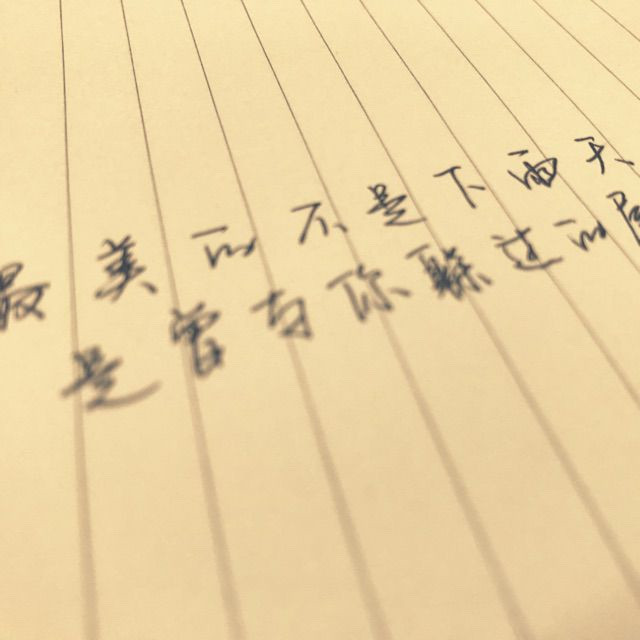 最美的不是下雨天
是曾与你躲过雨的